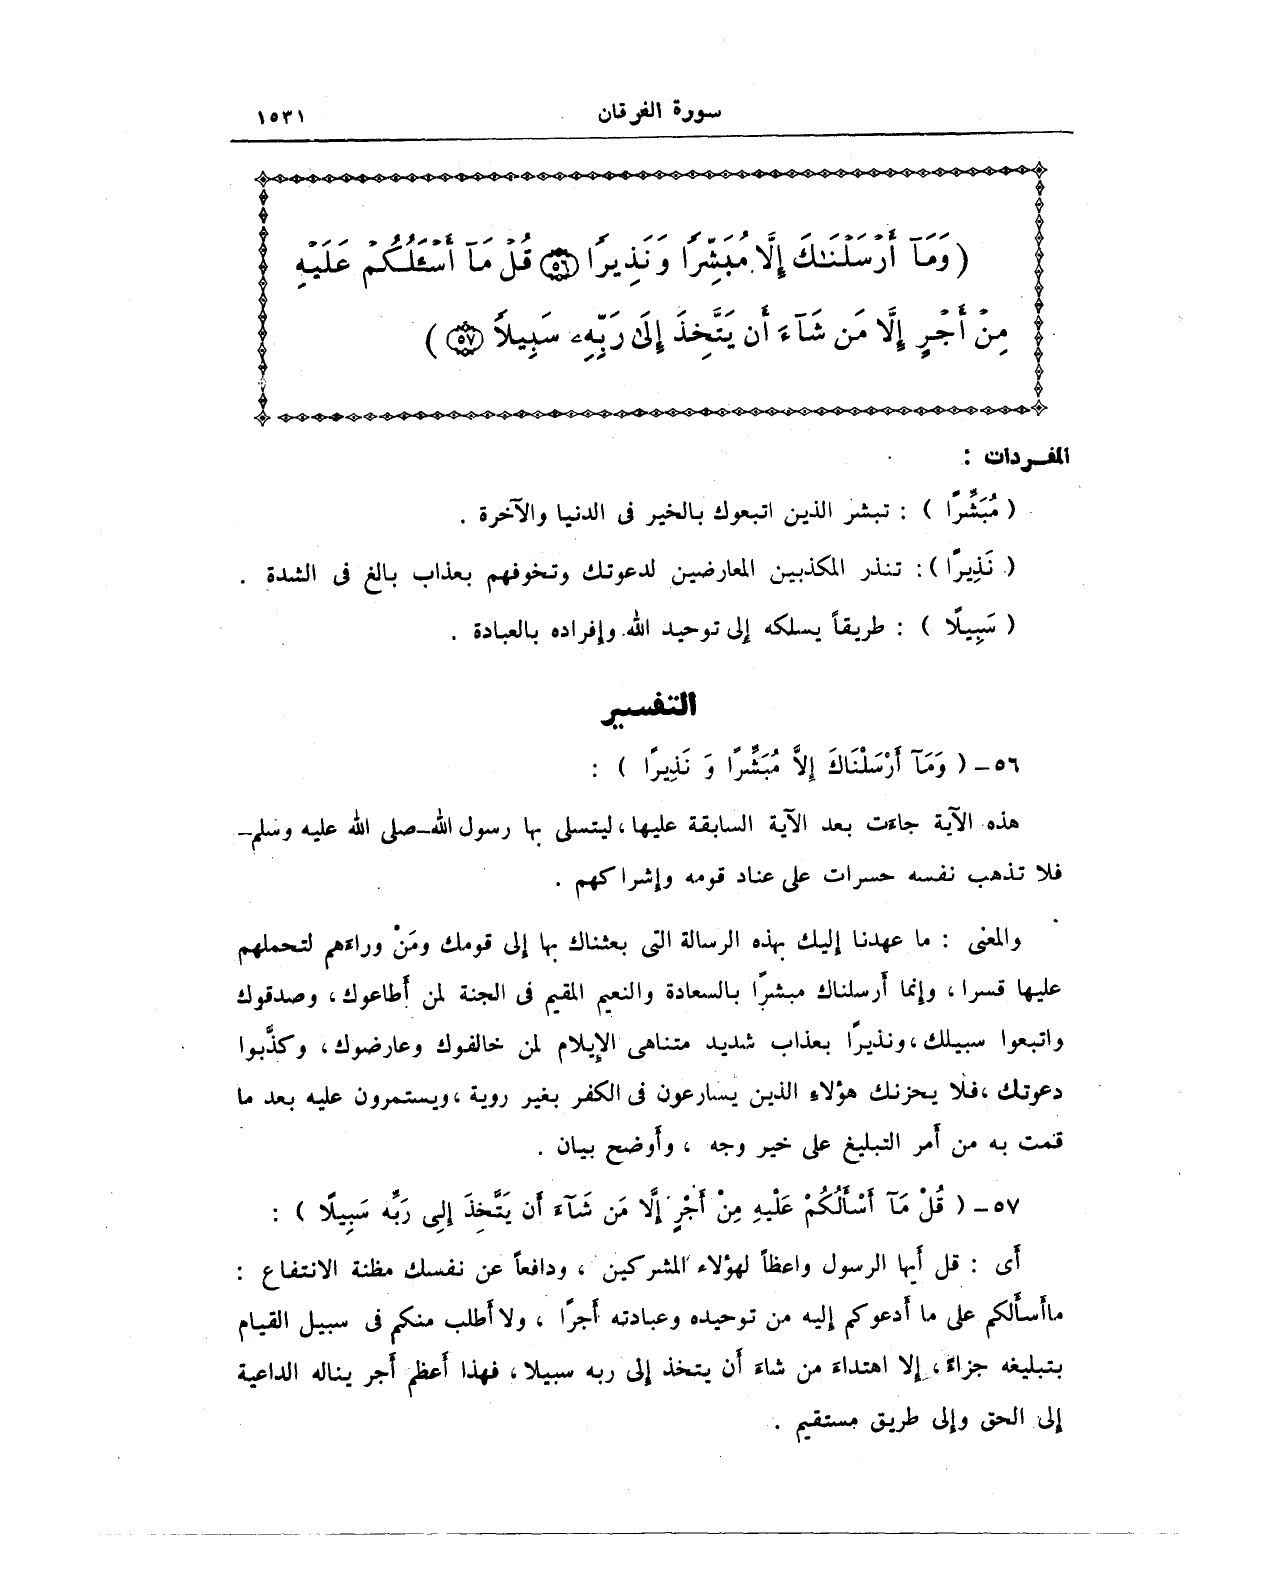 سورة الفرقان ١٥٣١
(وَمَآ أَرْسَلْنَـٰكَ إِلَّا مُبَشِّرًا وَنَذِيرًا ٥٦ قُلْ مَآ أَسْـَٔلُكُمْ عَلَيْهِ
مِنْ أَجْرٍ إِلَّا مَن شَآءَ أَن يَتَّخِذَ إِلَىٰ رَبِّهِۦ سَبِيلًا ٥٧)
المفـردات :
( مُبَشِّرًا ) : تبشر الذين اتبعوك بالخير فى الدنيا والآخرة .
( نَذِيرًا ) : تنذر المكذبين المعارضين لدعوتك وتخوفهم بعذاب بالغ فى الشدة .
( سَبِيلًا ) : طريقاً يسلكه إلى توحيد الله وإفراده بالعبادة .
التفسير
٥٦ـ ( وَمَآ أَرْسَلْنَاكَ إِلاَّ مُبَشِّرًا وَ نَذِيرًا ) :
هذه الآية جاءت بعد الآية السابقة عليها ، ليتسلى بها رسول الله ـ صلى الله عليه وسلم ـ
فلا تذهب نفسه حسرات على عناد قومه وإشراكهم .
والمعنى : ما عهدنا إليك بهذه الرسالة التى بعثناك بها إلى قومك ومَنْ وراءهم لتحملهم
عليها قسرا ، وإنما أرسلناك مبشرًا بالسعادة والنعيم المقيم فى الجنة لمن أطاعوك ، وصدقوك
واتبعوا سبيلك ، ونذيرًا بعذاب شديد متناهى الإيلام لمن خالفوك وعارضوك ، وكذَّبوا
دعوتك ، فلا يحزنك هؤلاء الذين يسارعون فى الكفر بغير روية ، ويستمرون عليه بعد ما
قمت به من أمر التبليغ على خير وجه ، وأوضح بيان .
٥٧ـ ( قُلْ مَآ أَسْأَلُكُمْ عَلَيْهِ مِنْ أَجْرٍ إِلَّا مَن شَآءَ أَن يَتَّخِذَ إِلى رَبِّه سَبِيلًا ) :
أى : قل أيها الرسول واعظاً لهؤلاء المشركين ، ودافعاً عن نفسك مظنة الانتفاع :
ما أسألكم على ما أدعوكم إليه من توحيده وعبادته أجرًا ، ولا أطلب منكم فى سبيل القيام
بتبليغه جزاءً ، إلا اهتداء من شاء أن يتخذ إلى ربه سبيلا ، فهذا أعظم أجر يناله الداعية
إلى الحق وإلى طريق مستقيم .